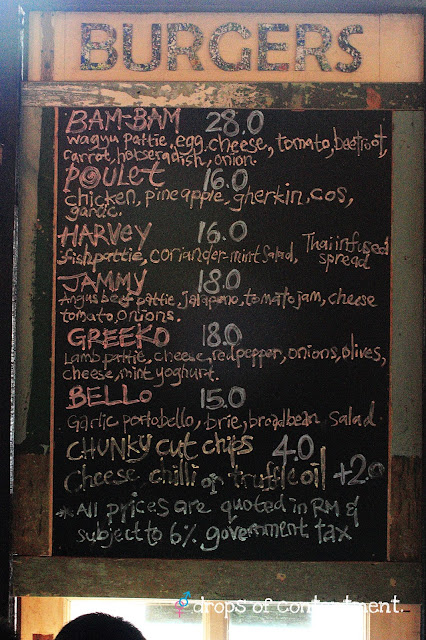 BURGERS
BAM-BAM 28.0
wagyu pattie, egg, cheese, tomato, beetroot,
carrot, horseradish, onion.
POULET 16.0
chicken, pineapple, gherkin, cos,
garlic.
HARVEY 16.0
fish pattie, coriander-mint salad, Thai infused
spread
JAMMY 18.0
Angus beef pattie, jalapeno, tomato jam, cheese
tomato, onions.
GREEKO 18.0
Lamb pattie, cheese, red pepper, onions, olives,
cheese, mint yoghurt.
BELLO 15.0
Garlic portobello, brie, broadbean, salad
CHUNKY cut chips 4.0
Cheese, chilli or truffle oil +2.0
* All prices are quoted in RM &
subject to 6% government tax
drops of contentment..